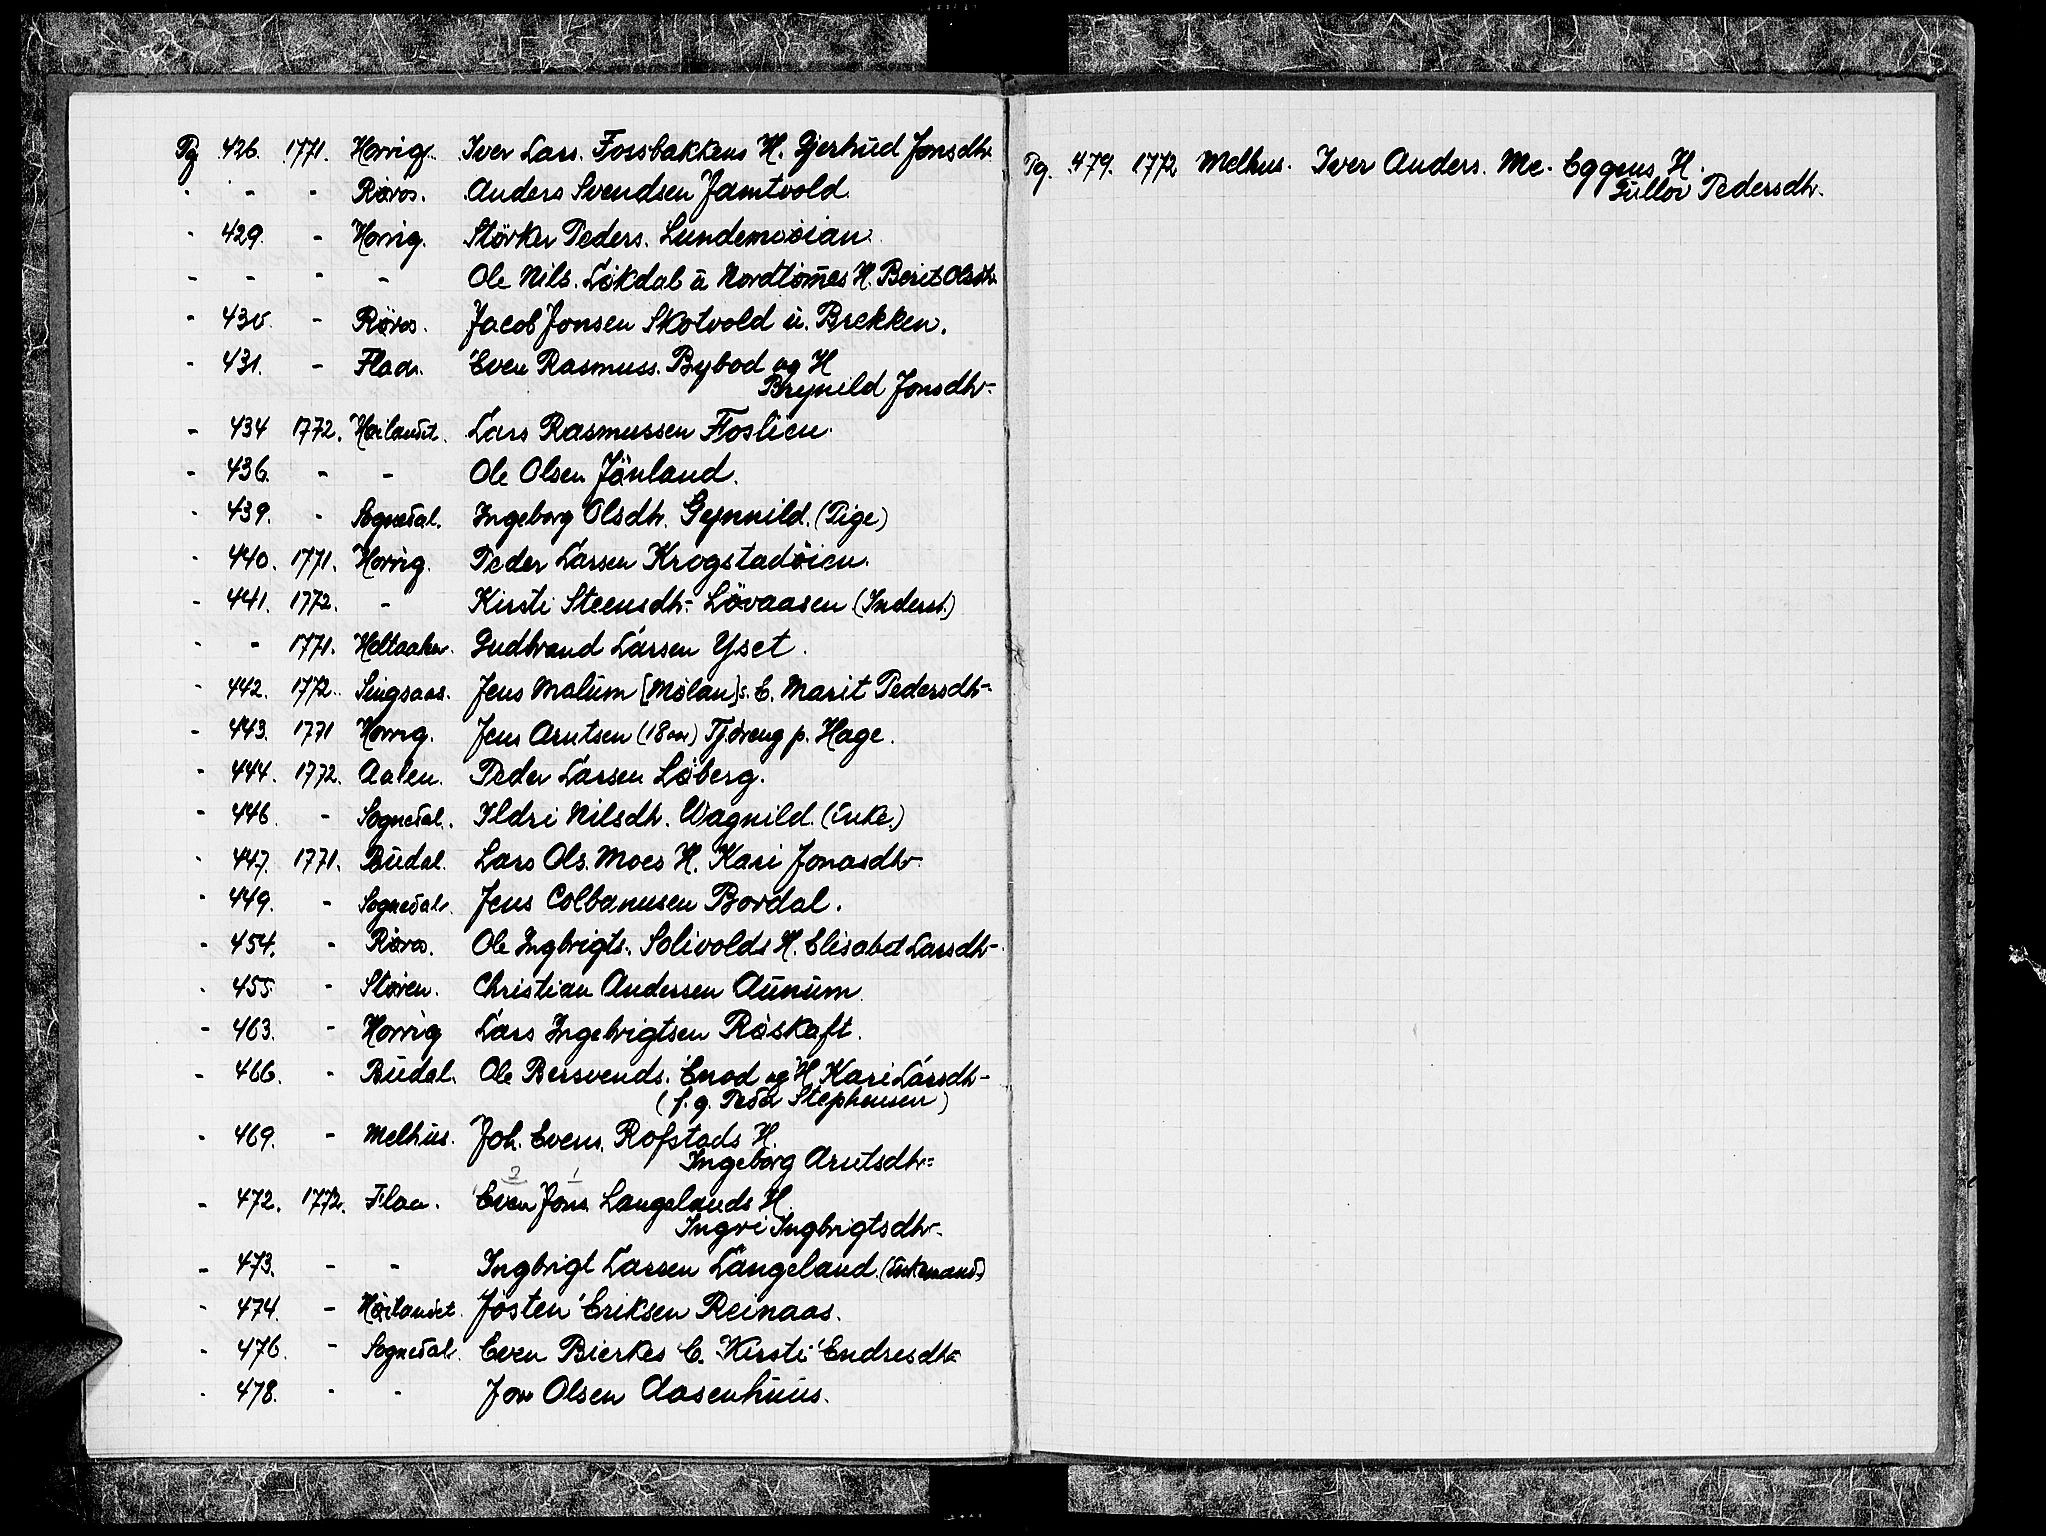 Pg 426. 1771. Horrig. Iver Lars. Fossbakkens H. Gjertrud Jonsdtr.
- - - Røros. Anders Svendsen Jamtvold.
- 429. - Horrig. Störker Peders. Lundemoian.
- - - - Ole Nils. Lökdal u Nordtömes H. Berit Olsdtr.
- 430. - Røros. Jacob Jonsen Skotvold u. Brekken.
- 431. - Flaa. Even Rasmuss. Bybod og H
Brynild Jonsdtr.
- 434 1772. Høilandet. Lars Rasmussen Foslien.
- 436. - - Ole Olsen Jönland.
- 439. - Sognedal. Ingeborg Olsdtr. Gynnild. (Pige)
- 440. 1771. Horrig. Peder Larsen Krogstadöien.
- 441. 1772. - Kirsti Steensdtr. Lövaasen (Inderst.)
- - 1771. Holtaalen. Gudbrand Larsen Yset.
- 442. 1772. Singsaas. Jens Malum [Mølan]s. E. Marit Pedersdtr.
- 443. 1771 Horrig. Jens Arntsen (18 aar) Tjöreng p. Hage.
- 444. 1772. Aalen. Peder Larsen Löberg.
- 446. - Sognedal. Ildri Nilsdtr. Wagnild. (Enke.)
- 447. 1771. Budal. Lars Ols. Moes H. Kari Jonasdtr.
- 449. - Sognedal. Jens Colbanusen Bordal.
- 454. - Røros. Ole Ingbrigts. Solivolds H. Elisabet Larsdtr.
- 455 - Støren. Christian Andersen Aunum.
- 463. - Horrig Lars Ingebrigtsen Röskaft.
- 466. - Budal. Ole Bersvends. Enod og H Kari Larsdtr.
(f. g. Peder Stephensen)
- 469. - Melhus. Joh. Evens. Rofstads H.
Ingeborg Arntsdtr.
2 1
- 472. 1772. Flaa. Even Jons. Langelands H.
Ingri Ingbrigtsdtr.
- 473. - - Ingbrigt Larsen Langeland. (Enkemand)
- 474. - Høilandet. Josten Eriksen Reinaas.
- 476. - Sognedal. Even Bierkes E. Kirsti Endresdtr.
- 478. - - Jon Olsen Aasenhuus.
Pg. 479. 1772 Melhus. Iver Anders. Me. Eggens H.
Gullov Pedersdtr.